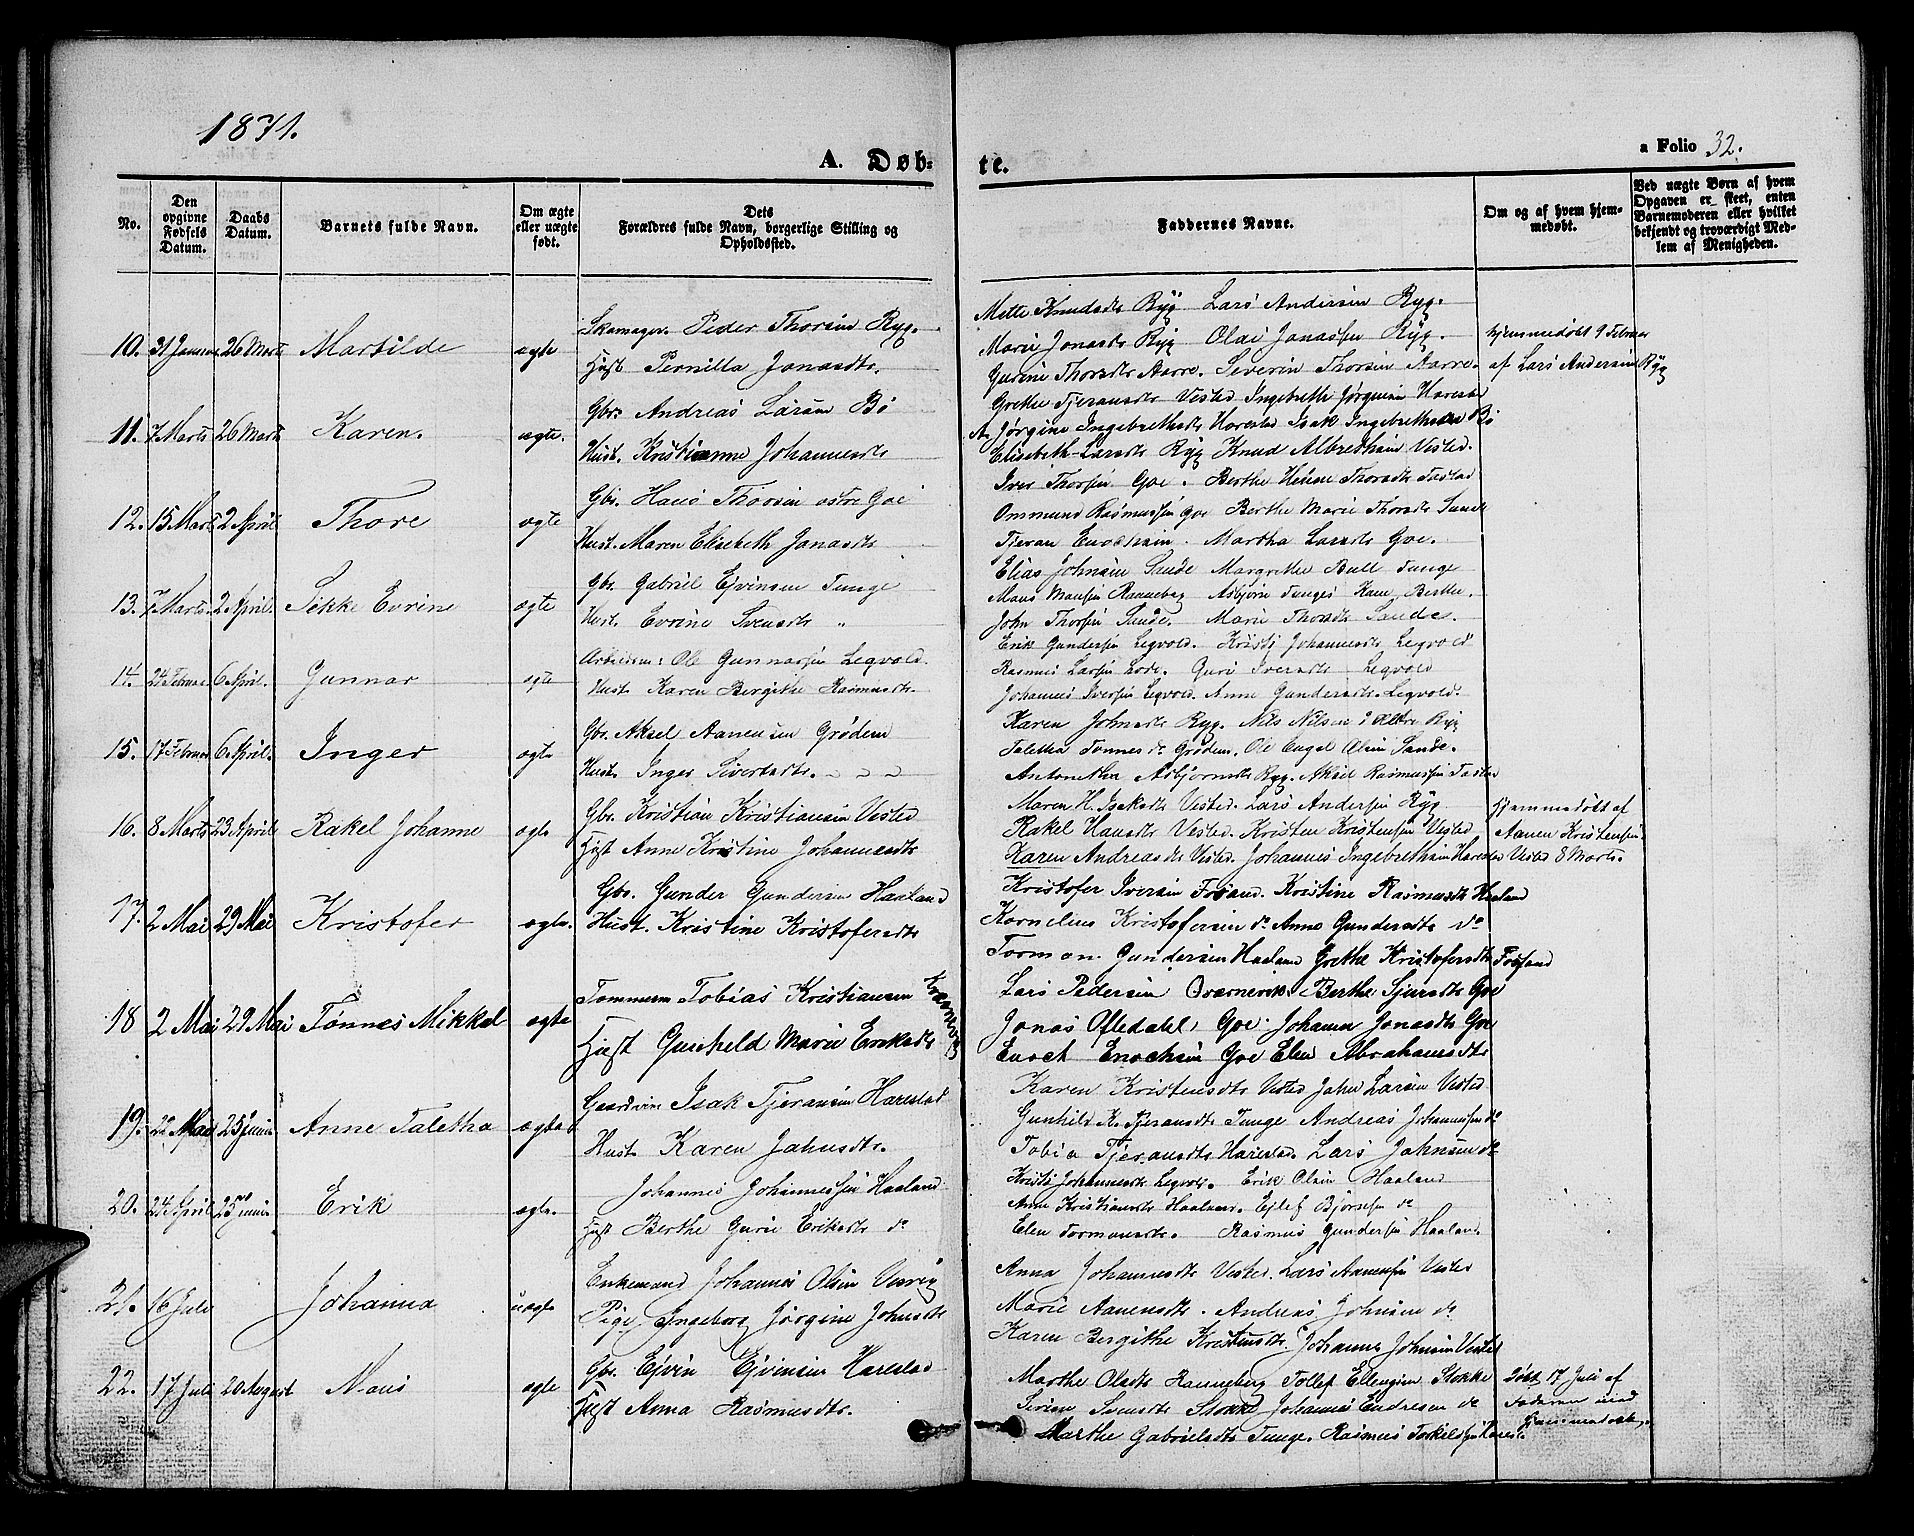 1871.
A. Døb-
te.
a Folio 32.
No.
Den opgivne Fødsels Datum.
Daabs Datum.
Barnets fulde Navn.
Om ægte eller uægte født.
Dets Forældres fulde Navn, borgerlige Stilling og Opholdssted.
Faddernes Navne.
Om og af hvem hjemmedøbt.
Ved uægte Børn af hvem Opgaven er skeet, enten Barnemoderen eller hvilket bekjendt og troværdigt Medlem af Menigheden.
Mette Knudsdtr Ryg Lars Andersen Ryg.
10. 31 Januar 26 Marts Martilde ægte Skomager Peder Thorsen Ryg. Marie Jonasdtr Ryg Olai Jonassen Ryg. hjemmedøbt 9 Februar
Hust Pernilla Jonasdtr. Gurine Thorsdtr Aarre. Severin Thorsen Aarre. af Lars Andersen Ryg
Gbr. Andreas Larsen Bø Grethe Tjeransdtr Vested Ingebreth Jørginsen Harestad
11. 7 Marts 26 Marts Karen. ægte. A. Jørgine Ingebrethsdtr Harestad Isak Ingebrethsen Bø
Hust. Kristianne Johannesdtr Elisabeth Larsdtr Ryg Knud Albrethsen Visted.
Gbr. Hans Thorsen østre Goe Iver Thorsen Goe. Berthe Helene Thorsdtr Tasted
12. 15 Marts 2 April Thore ægte Ommund Rasmussen Goe Berthe Marie Thorsdtr Sande
Hust. Maren Elisebeth Jonasdtr Tjeran Enochsen. Martha Larsdtr Goe.
Gbr. Gabriel Ejvinsen Tunge Elias Johnsen Sande Margrethe Bull Tunge
13. 7 Marts. 2 April. Sekke Evrine ægte Maus Mausen Ranneberg Asbjørn Tunges Kone Berthe.
Hust. Evrine Svensdtr " John Thorsen Sande. Marie Thorsdtr Sande.
Erik Gundersen Legvold. Kristi Johannesdtr Legvold
14. 24 Februar 6 April. Gunnar ægte Arbeidsm: Ole Gunnarsen Legvold. Rasmus Larsen Lode. Guri Iversdtr Legvold
Hust. Karen Bergithe Rasmusdtr. Johannes Iversen Legvold. Anne Gundersdtr. Legvold.
Gbr. Aksel Aanensen Grødem Karen Johnsdtr Ryg. Nils Nilsen i Øftre Ryg
15. 17 Februar 6 April. Inger ægte Taletha Tønnesdr Grødem. Ole Engel Olsen Sande.
Hust. Inger Sivertsdtr. Antonetha Asbjørnsdtr Ryg. Aksel Rasmussen Tasted
Gbr. Kristian Kristiansen Vested Maren H. Isaksdtr Vested. Lars Andersen Ryg Hjemmedøbt af
16. 8 Marts 23 April Rakel Johanne ægte Rakel Hansdtr Vested. Kristen Kristensen Vested Aanen Kristensen
Hust Anne Kristine Johannesdtr Karen Andreasdtr Vested. Johannes Ingebrethsen Harestad Vested 8 Marts.
Gbr. Gunder Gundersen Haaland Kristofer Iversen Fosand. Kristine Rasmusdtr Haaland
17. 2 Mai 29 Mai Kristofer ægte. Hust. Kristine Kristofersdtr Kornelius Kristofersen do Anne Gundersdtr do
Tormon Gundersen Haaland Grethe Kristofersdtr Fosand
Tømmerm Tobias Kristiansen Kværnevig Lars Pedersen Qværnevik. Berthe Sjursdtr Goe
18 2 Mai 29 Mai Tønnes Mikkel ægte Jonas Oftedahl, Goe. Johanna Jonasdtr Goe
Hust Gunhild Marie Eriksdtr Enoch Enochsen Goe Elen Abrahamsdtr
Gaardbr. Isak Tjeransen Harestad Karen Kristensdtr Vested John Larsen Vested
19. 22 Mai 25 Juni Anne Taletha ægte Gunhild K. Tjeransdtr Tunge Andreas Johannessen do
Hust Karen Johnsdtr. Tobia Tjeransdtr Harestad. Lars Johnsen do
Johannes Johannessen Haaland Kristi Johannesdtr Legvold. Erik Olsen Haaland
20. 24 April 25 Juni Erik ægte. Anne Kristiansdtr Haaland. Ejlef Bjørsen do
Hust Berthe Gurie Eriksdtr do Elen Tormonsdtr. Rasmus Gundersen Haaland.
Enkemand Johannes Olsen Anna Johannesdtr Vested. Lars Aanensen Vested
21. 16 Juli Johanna uægte Marie Aanensdtr. Andreas Johnsen do
Pige Ingeborg Jørgine Johnsdtr Karen Bergithe Kristensdtr. Johannes Johnsen Vested
Gbr. Ejvin Ejvinsen Harestad Marthe Olsdtr Ranneberg Tollef Ellingsen Stokke Døbt 17 Juli af
22. 17 Juli 20 August Maus ægte Serine Svensdtr Stokke Johannes Endresen do Faderen med
Hust Anna Rasmusdtr. Marthe Gabrielsdtr Tunge. Rasmus Torkelsen Harestad Hjemmedaab.